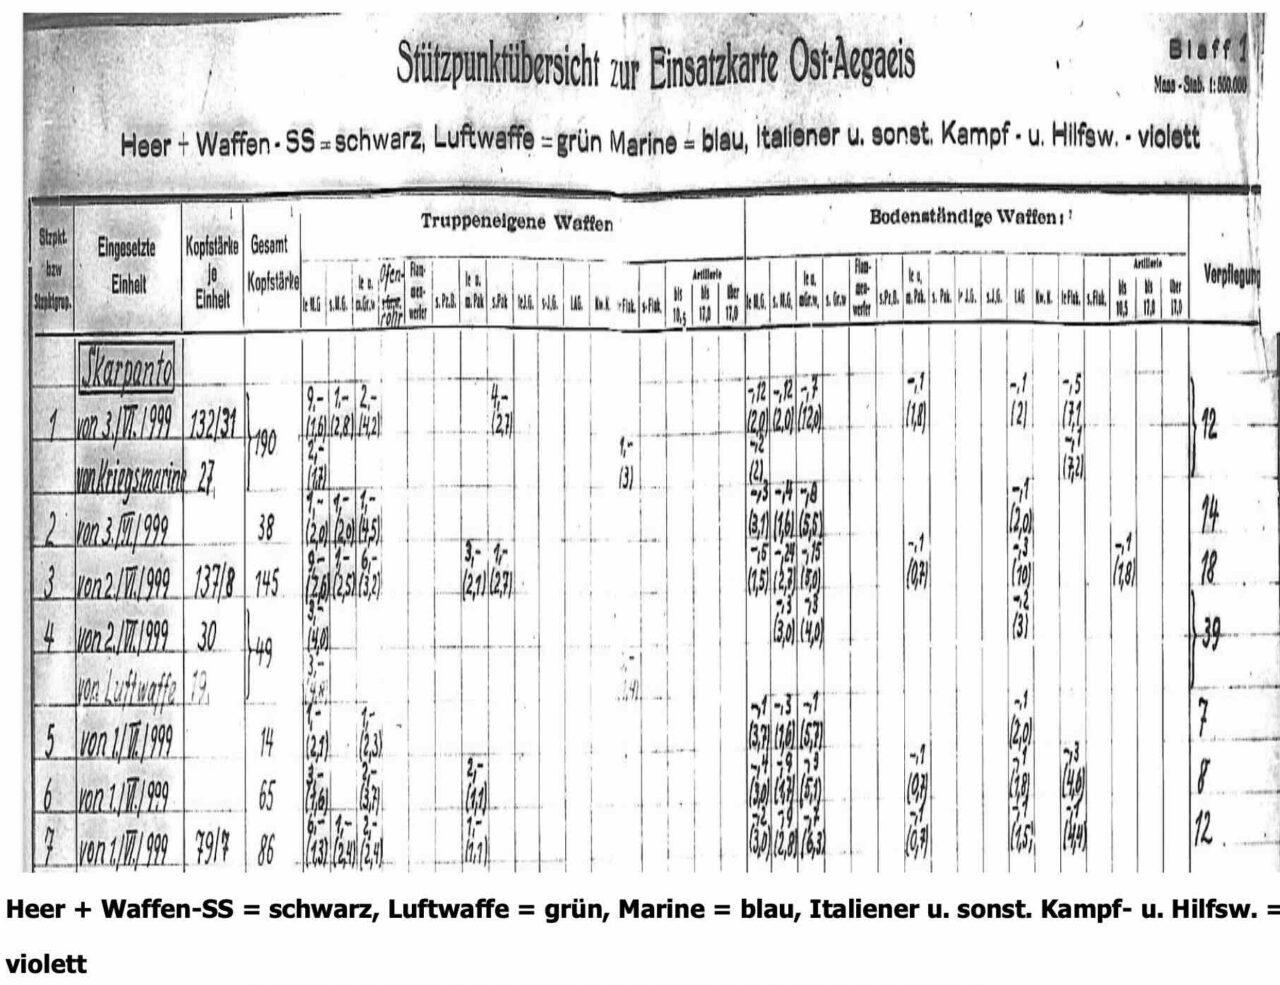 Stützpunktübersicht zur Einsatzkarte Ost-Aegaeis
Blatt 1
Mass-Stab. 1:500.000
Heer + Waffen-SS = schwarz, Luftwaffe = grün Marine = blau, Italiener u. sonst. Kampf- u. Hilfsw. - violett
Stzpkt. bzw Stzpktgrup.
Eingesetzte Einheit
Kopfstärke je Einheit
Gesamt Kopfstärke
Truppeneigene Waffen
Bodenständige Waffen:
Verpflegung
le M.G. s.M.G. le u. m.Gr.w Ofen-rohr Flam-men-werfer s.Pz.B. le u. m.Pak s.Pak le J.G. s.J.G. LAG Kw.K. le Flak. s.Flak. Artillerie bis 10,5 bis 17,0 über 17,0
le M.G. s.M.G. le u. m.Gr.w. s. Gr.w Flam-men-werfer s.Pz.B. le u. m.Pak. s. Pak. le J.G. s.J.G. LAG Kw.K. le Flak. s.Flak. Artillerie bis 10,5 bis 17,0 über 17,0
Skarpanto
9,- 1,- 2,- 4,- -,12 -,12 -,7 -,1 -,1 -,5
1 von 3./VI./999 132/31 190 (1,6) (2,8) (4,2) (2,7) (2,0) (2,0) (12,0) (1,8) (2) (7,1 12
2,- 1,- -,2 -,1
von Kriegsmarine 27 (1,7) (3) (2) (7,2)
1,- 1,- 1,- -,3 -,4 -,8 -,1
2 von 3./VI/999 38 (2,0) (2,0) (4,5) (3,1) (1,6) (5,5) (2,0) 14
9,- 1,- 6,- 3,- 1,- -,5 -,24 -,15 -,1 -,3 -,1
3 von 2./VI./999 137/8 145 (2,6) (2,5) (3,2) (2,1) (2,7) (1,5) (2,3) (3,0) (0,7) (10) (1,8) 18
3,- -,3 -,3 -,2
4 von 2./VI./999 30 49 (4,0) (3,0) (4,0) (3) 39
3,-
von Luftwaffe 19
1,- 1,- -,1 -,3 -,1 -,1
5 von 1./VI./999 14 (2,1) (2,3) (3,7) (1,6) (5,7) (2,0) 7
3,- 2,- 2,- -,4 -,9 -,3 -,1 -,1 -,3
6 von 1./VI./999 65 (1,6) (3,7) (1,1) (3,0) (1,7) (5,1) (0,7) (1,8) (4,6) 8
6,- 1,- 2,- 1,- -,2 -,9 -,7 -,1 -,1 -,1
7 von 1./VI./999 79/7 86 (1,3) (2,4) (2,4) (1,1) (3,0) (2,8) (6,3) (0,7) (1,5) (4,4) 12
Heer + Waffen-SS = schwarz, Luftwaffe = grün, Marine = blau, Italiener u. sonst. Kampf- u. Hilfsw. =
violett